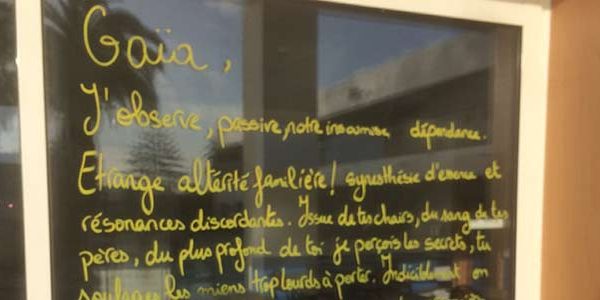 Gaïa,
J'observe, passive, notre insoumise dépendance.
Etrange altérité familière! synesthésie d'essence et
résonances discordantes. Issue de tes chairs, du sang de tes
pères, du plus profond de toi je perçois les secrets, tu
soulages les miens trop lourds à porter. Indiciblement on